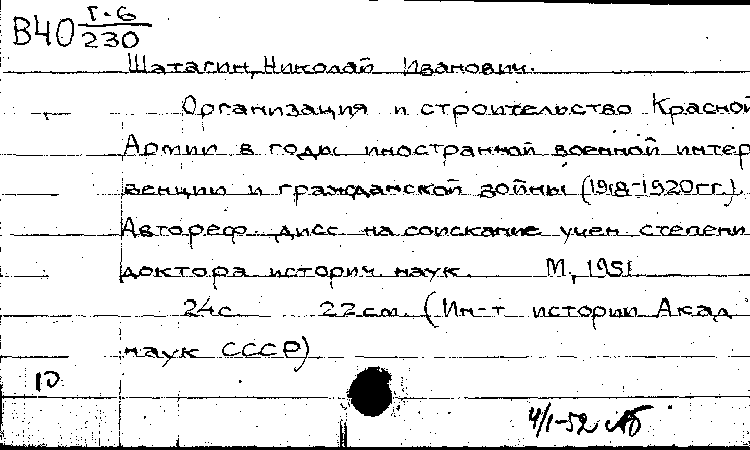 В40 Г-6
230
Шатагин, Николай Иванович.
Организация и строительство Красной
Армии в годы иностранной военной интер
венции и гражданской войны (1918-1920гг.).
Автореф. дисс. на соискание учен степени
доктора историч. наук. М, 1951
24с. 22см. (Ин-т истории Акад
наук СССР)
10
4/I-52